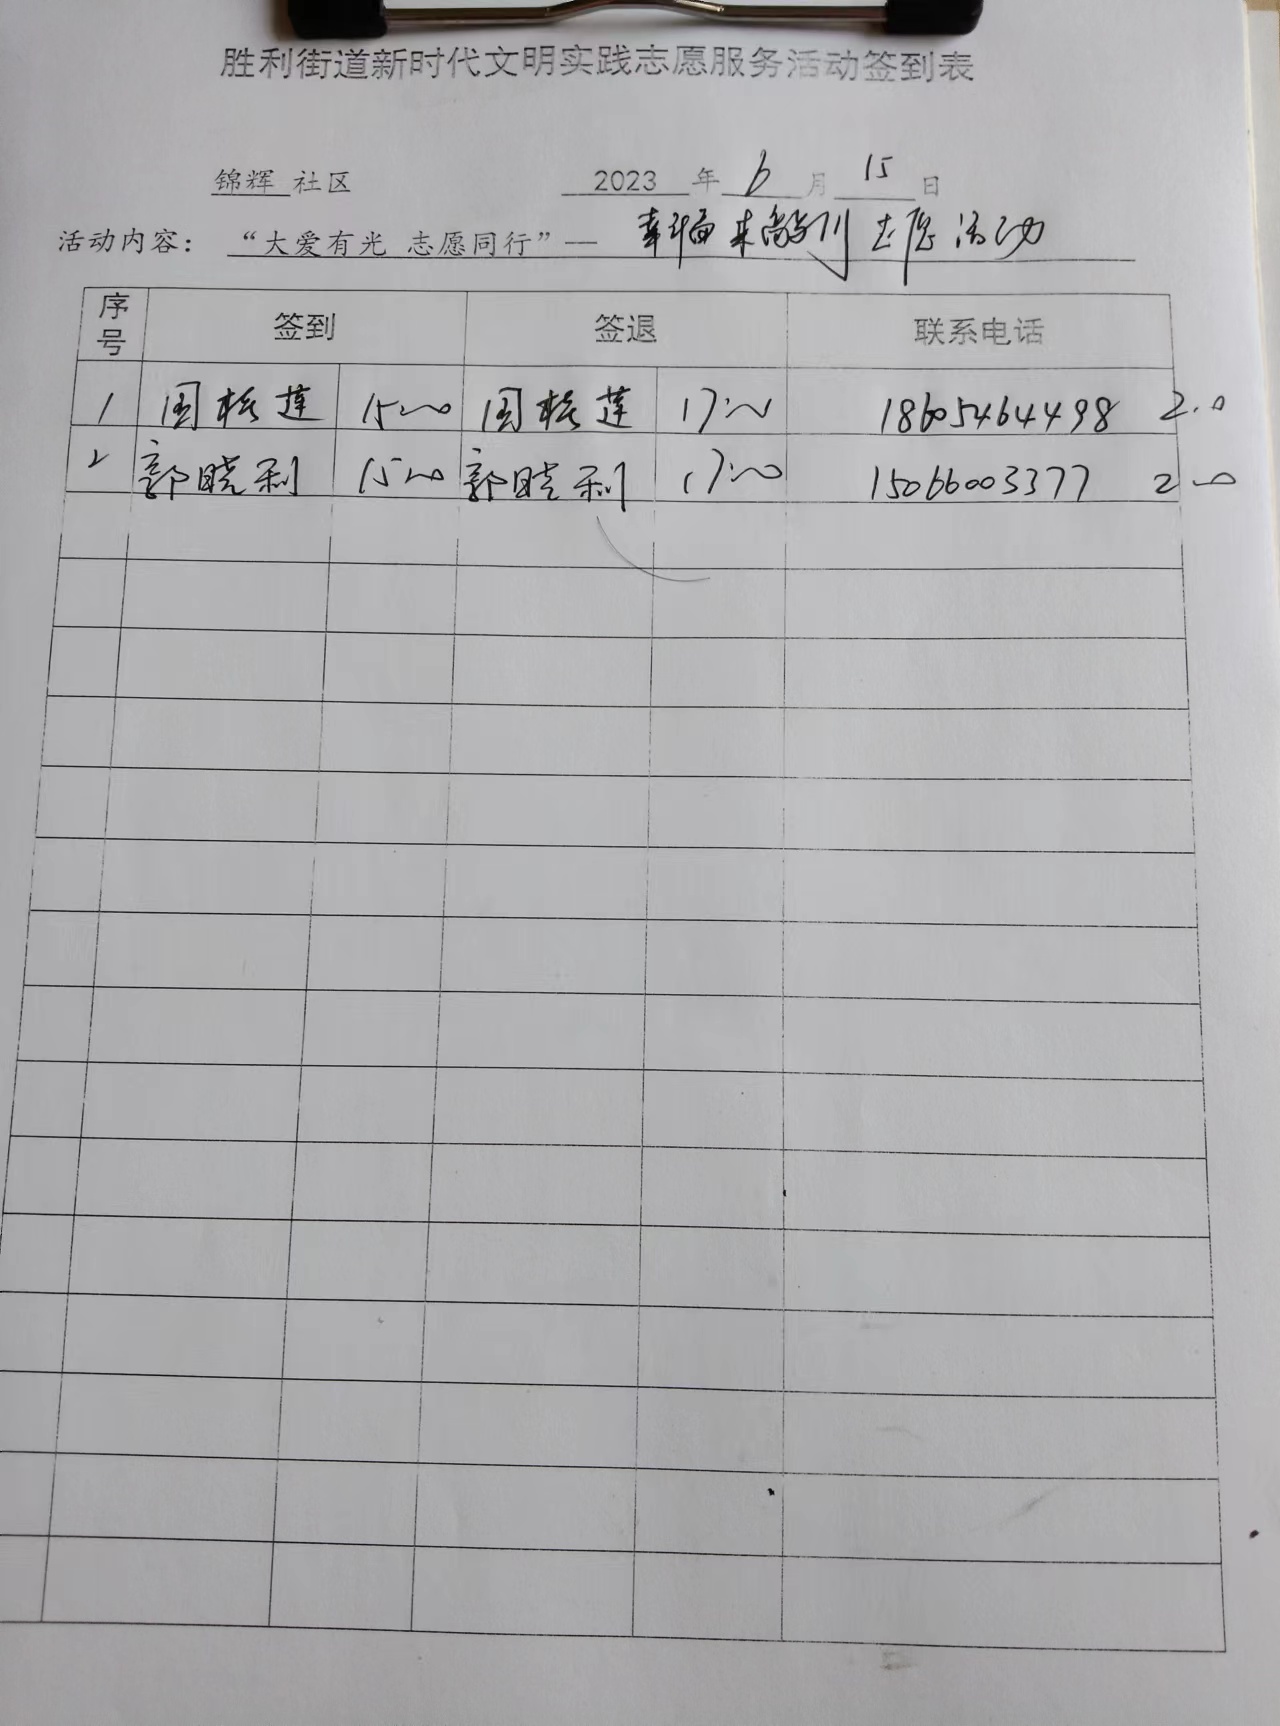 胜利街道新时代文明实践志愿服务活动签到表
锦辉 社区 2023 年 6 月 15 日
活动内容： “大爱有光 志愿同行”— 志愿活动
序号 签到 签退 联系电话
1 国桂莲 15:00 国桂莲 17:00 18605464498 2.0
2 郭晓利 15:00 郭晓利 17:00 15066003377 2.0